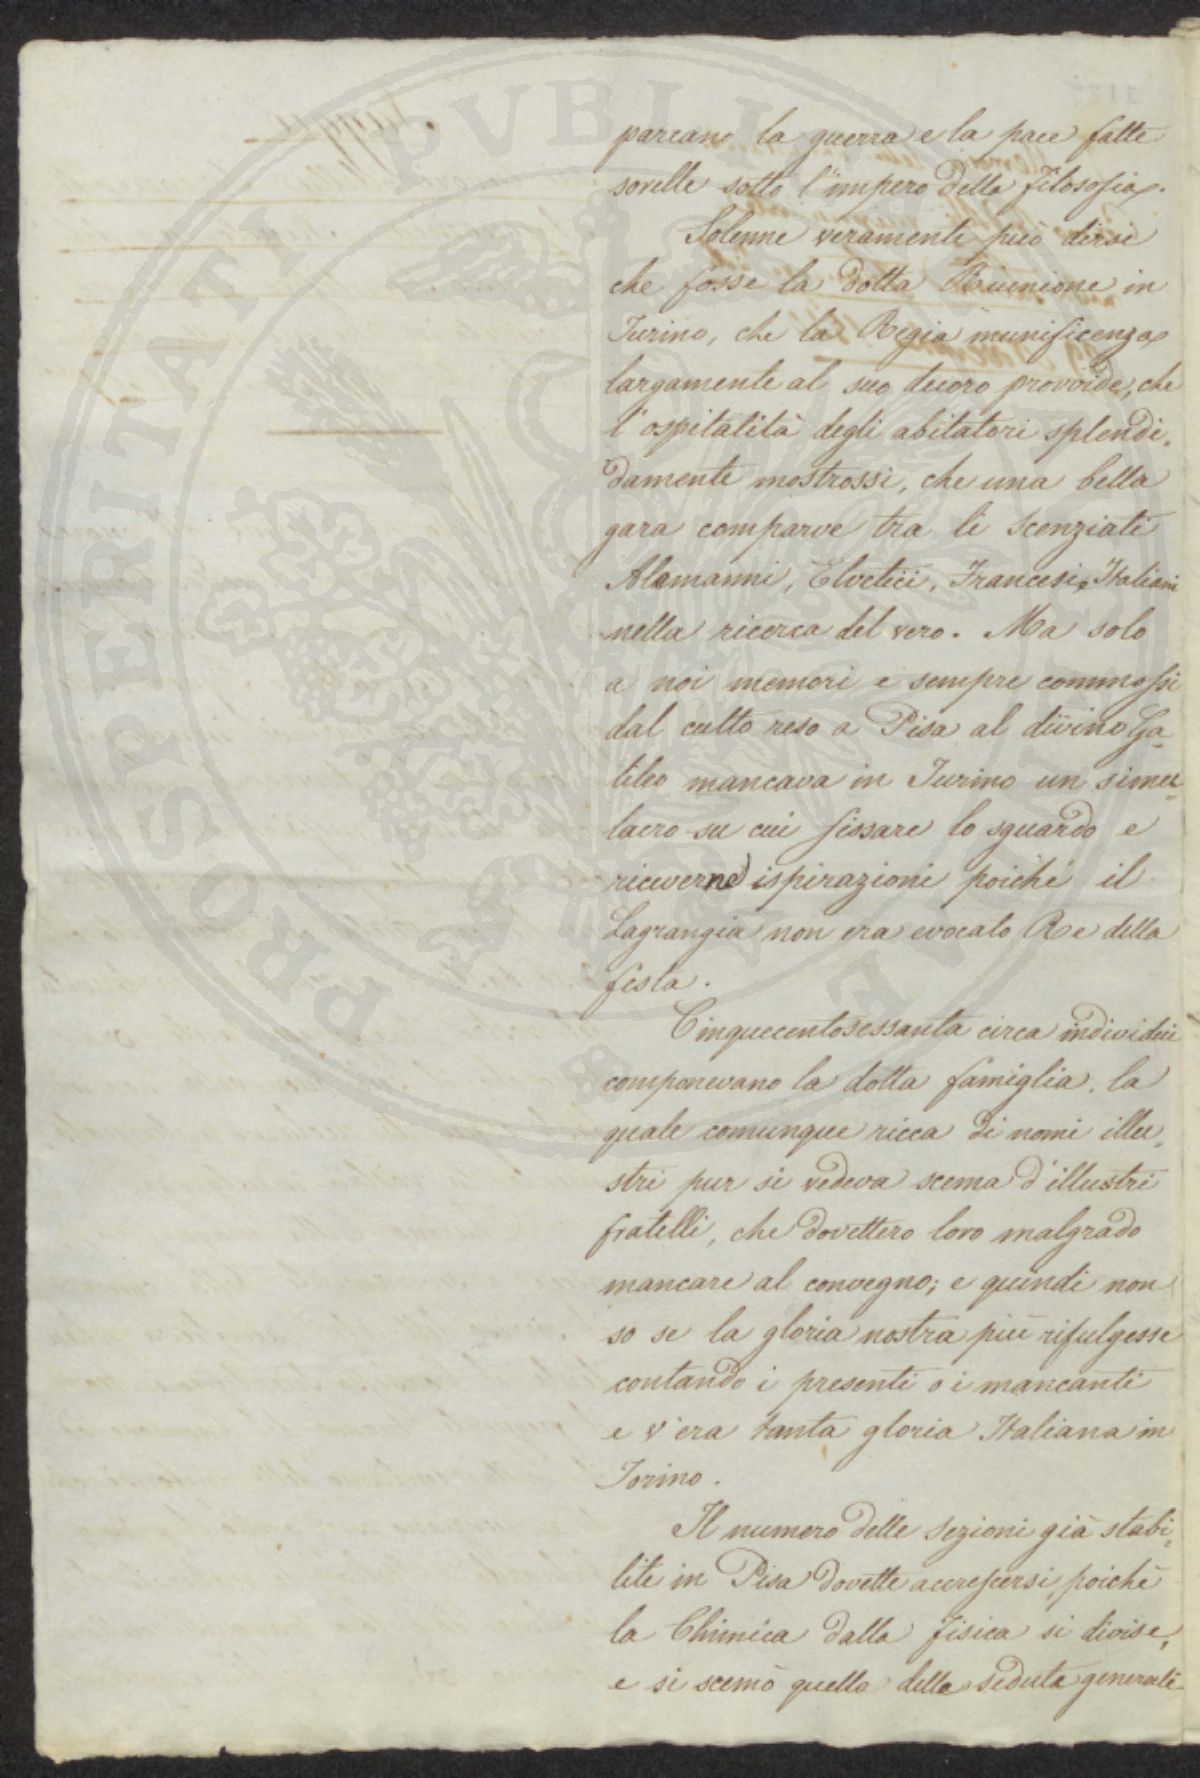 parcano la guerra e la pace fatte
sorelle sotto l'impero della filosofia.
Solenne veramente può dirsi
che fosse la dotta Riunione in
Turino, che la Regia munificenza
largamente al suo decoro provvide, che
l'ospitalità degli abitatori splendi-
damente mostrossi, che una bella
gara comparve tra li Scenziati
Alemanni, Elvetici, Francesi, Italiani
nella ricerca del vero. Ma solo
a noi memori e sempre commossi
dal culto reso a Pisa al divino Ga-
lileo mancava in Turino un simu-
lacro su cui fissare lo sguardo e
riceverne ispirazioni poiché il
Lagrangia non era evocato Re della
festa.
Cinquecentosessanta circa individui
componevano la dotta famiglia, la
quale comunque ricca di nomi illu-
stri pur si vedeva scema d'illustri
fratelli, che dovettero loro malgrado
mancare al convegno; e quindi non
so se la gloria nostra più rifulgesse
contando i presenti o i mancanti
e v'era tanta gloria Italiana in
Torino.
Il numero delle sezioni già stabi-
lite in Pisa dovette accrescersi, poiché
la Chimica dalla fisica si divise,
e si scemò quello delle sedute generali
PROSPERITATI PVBLICAE